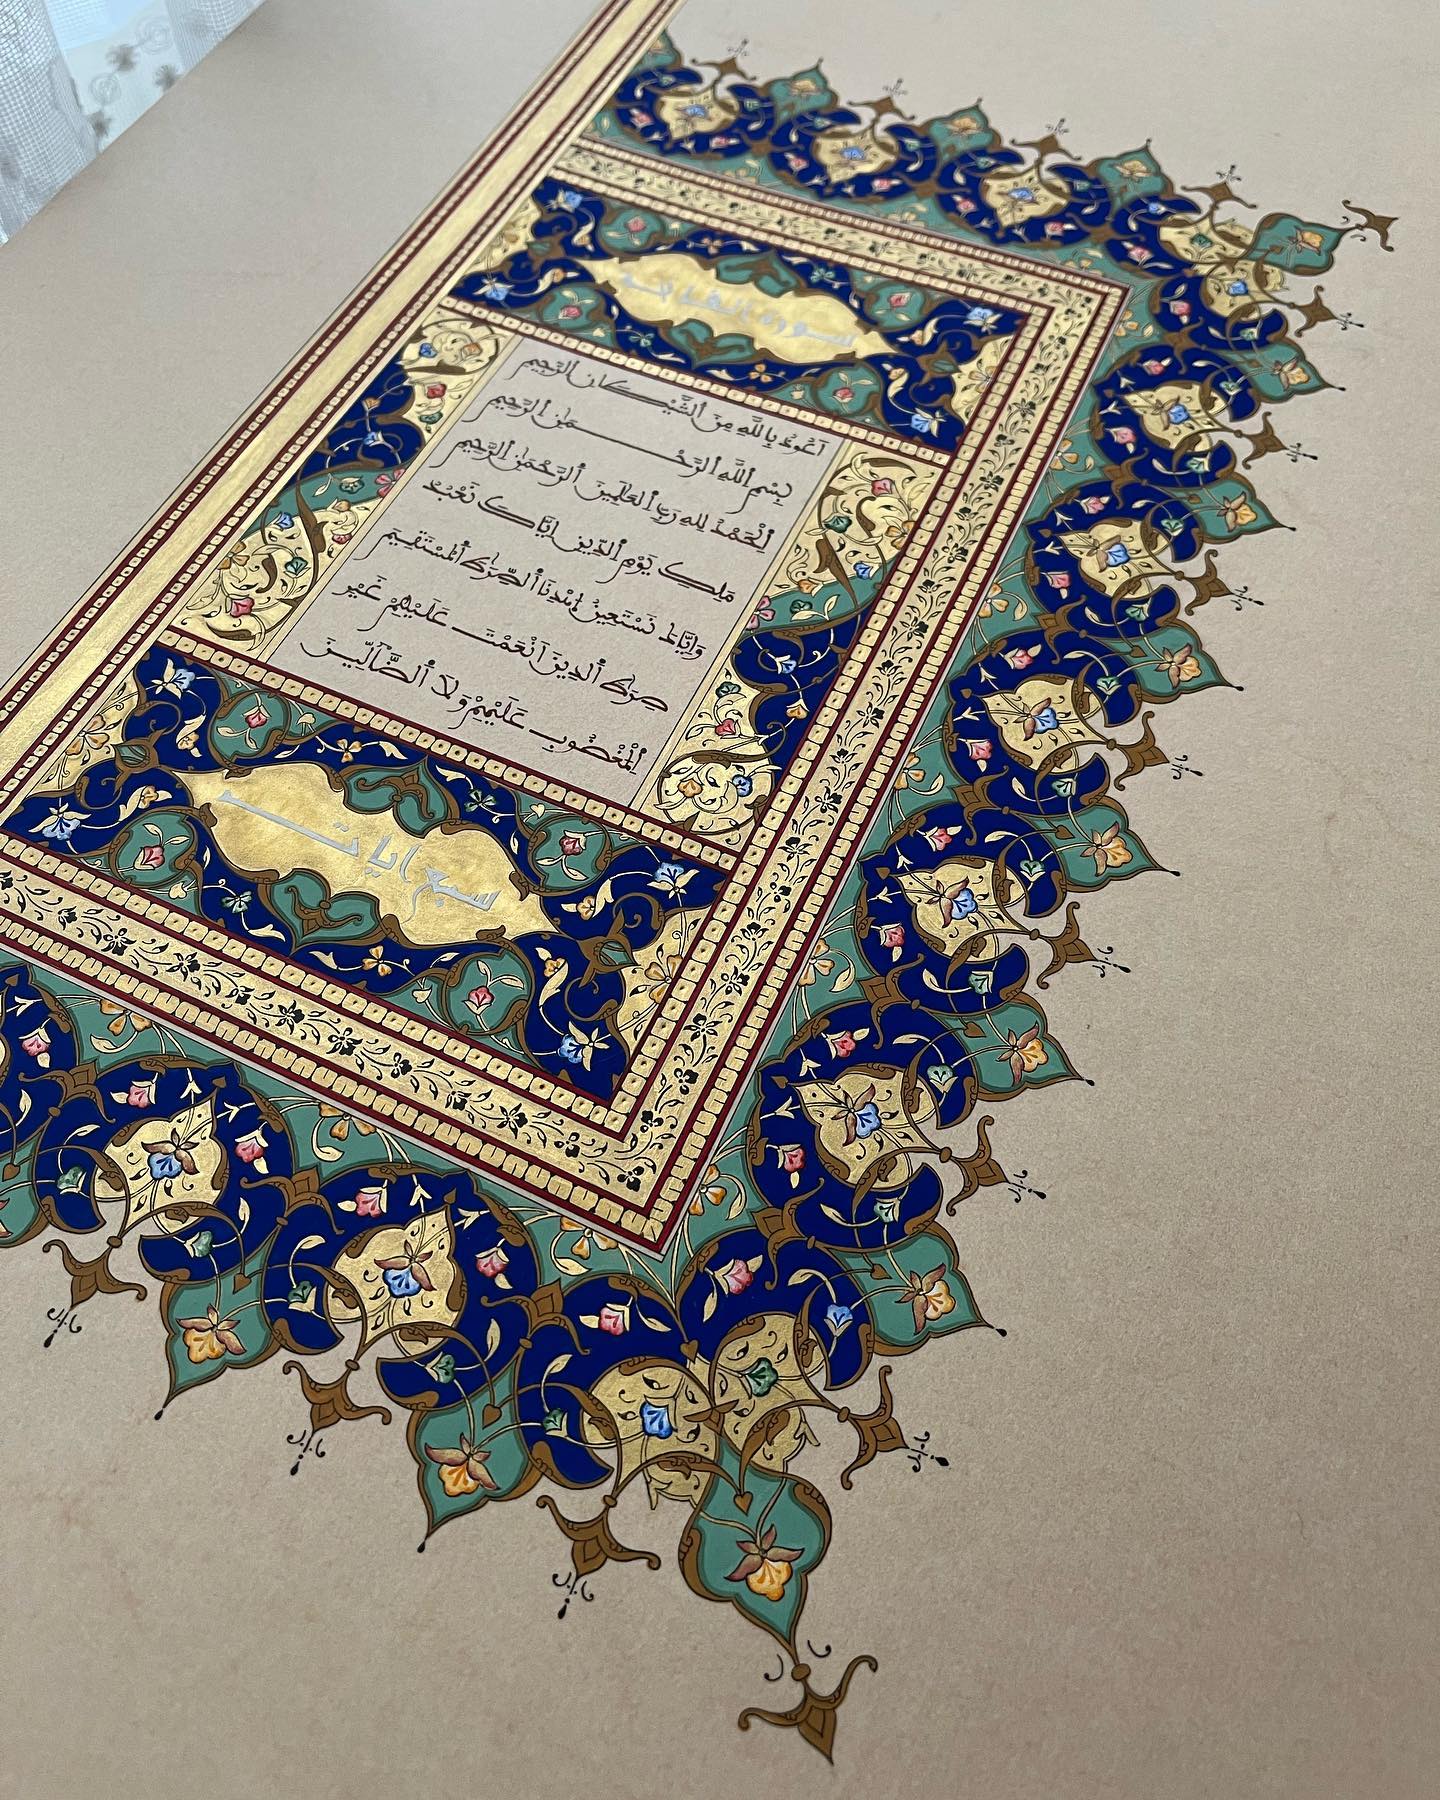 سورة الفاتحة
أَعُوذُ بِاللَّهِ مِنَ ٱلشَّيْطَانِ ٱلرَّجِيمِ
بِسْمِ ٱللَّهِ ٱلرَّحْمَٰنِ ٱلرَّحِيمِ
ٱلْحَمْدُ لِلهِ رَبِّ ٱلْعَٰلَمِينَ ٱلرَّحْمَٰنِ ٱلرَّحِيمِ
مَلِكِ يَوْمِ ٱلدِّينِ إِيَّاكَ نَعْبُدُ
وَإِيَّاكَ نَسْتَعِينُ ٱهْدِنَا ٱلصِّرَٰطَ ٱلْمُسْتَقِيمَ
صِرَٰطَ ٱلَّذِينَ أَنْعَمْتَ عَلَيْهِمْ غَيْرِ
ٱلْمَغْضُوبِ عَلَيْهِمْ وَلَا ٱلضَّآلِّينَ
سبع ايات